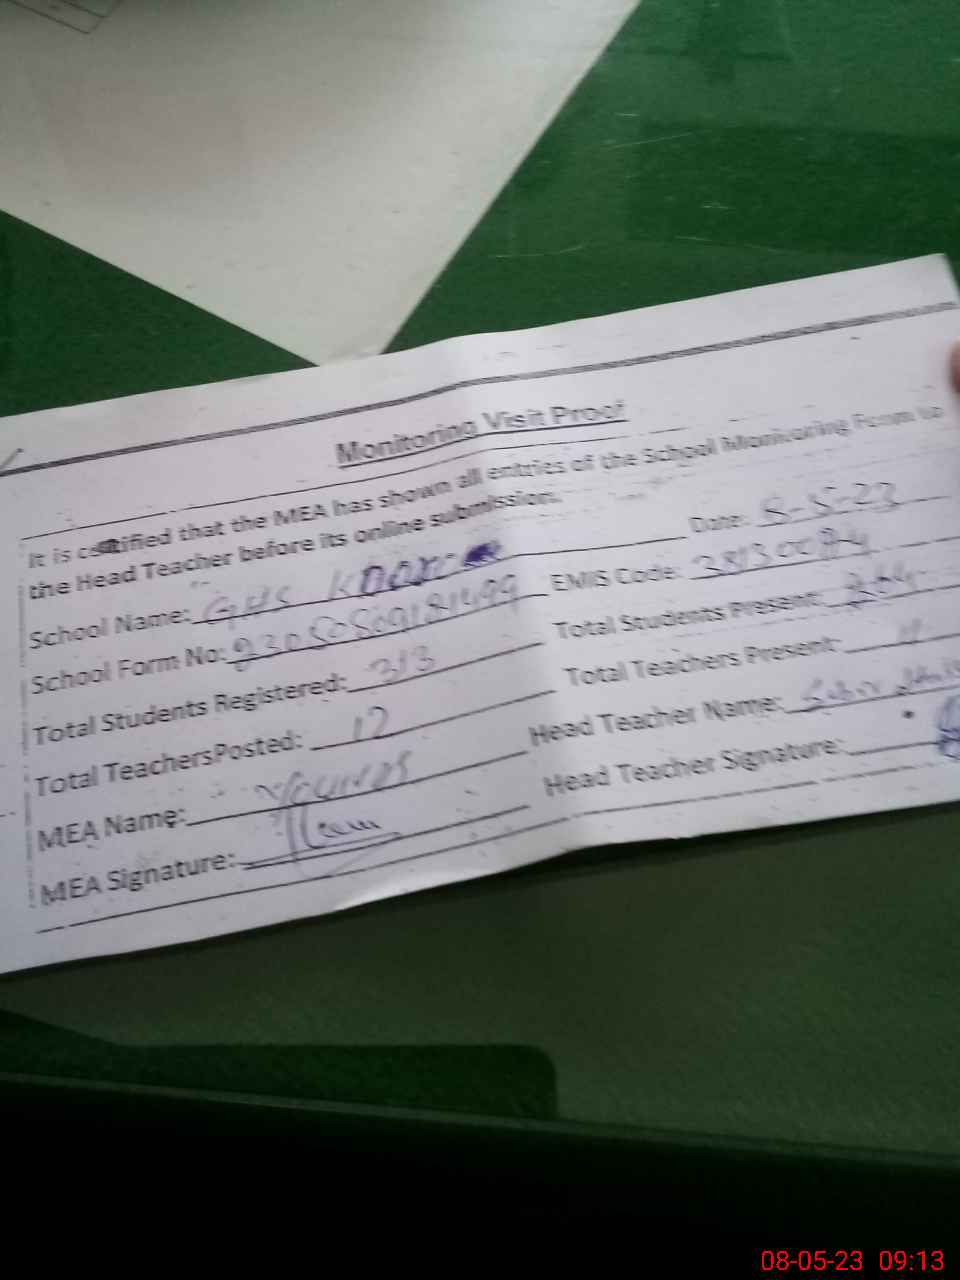 Monitoring Visit Proof
It is certified that the MEA has shown all entries of the School Monitoring Form to
the Head Teacher before its online submission.
Date: 8-5-23
School Name: GHS
EMIS Code:
School Form No:
Total Students Present: 264
Total Students Registered: 313
Total Teachers Present: 11
Total TeachersPosted: 12
Head Teacher Name:
MEA Name:
Head Teacher Signature:
MEA Signature:
08-05-23 09:13